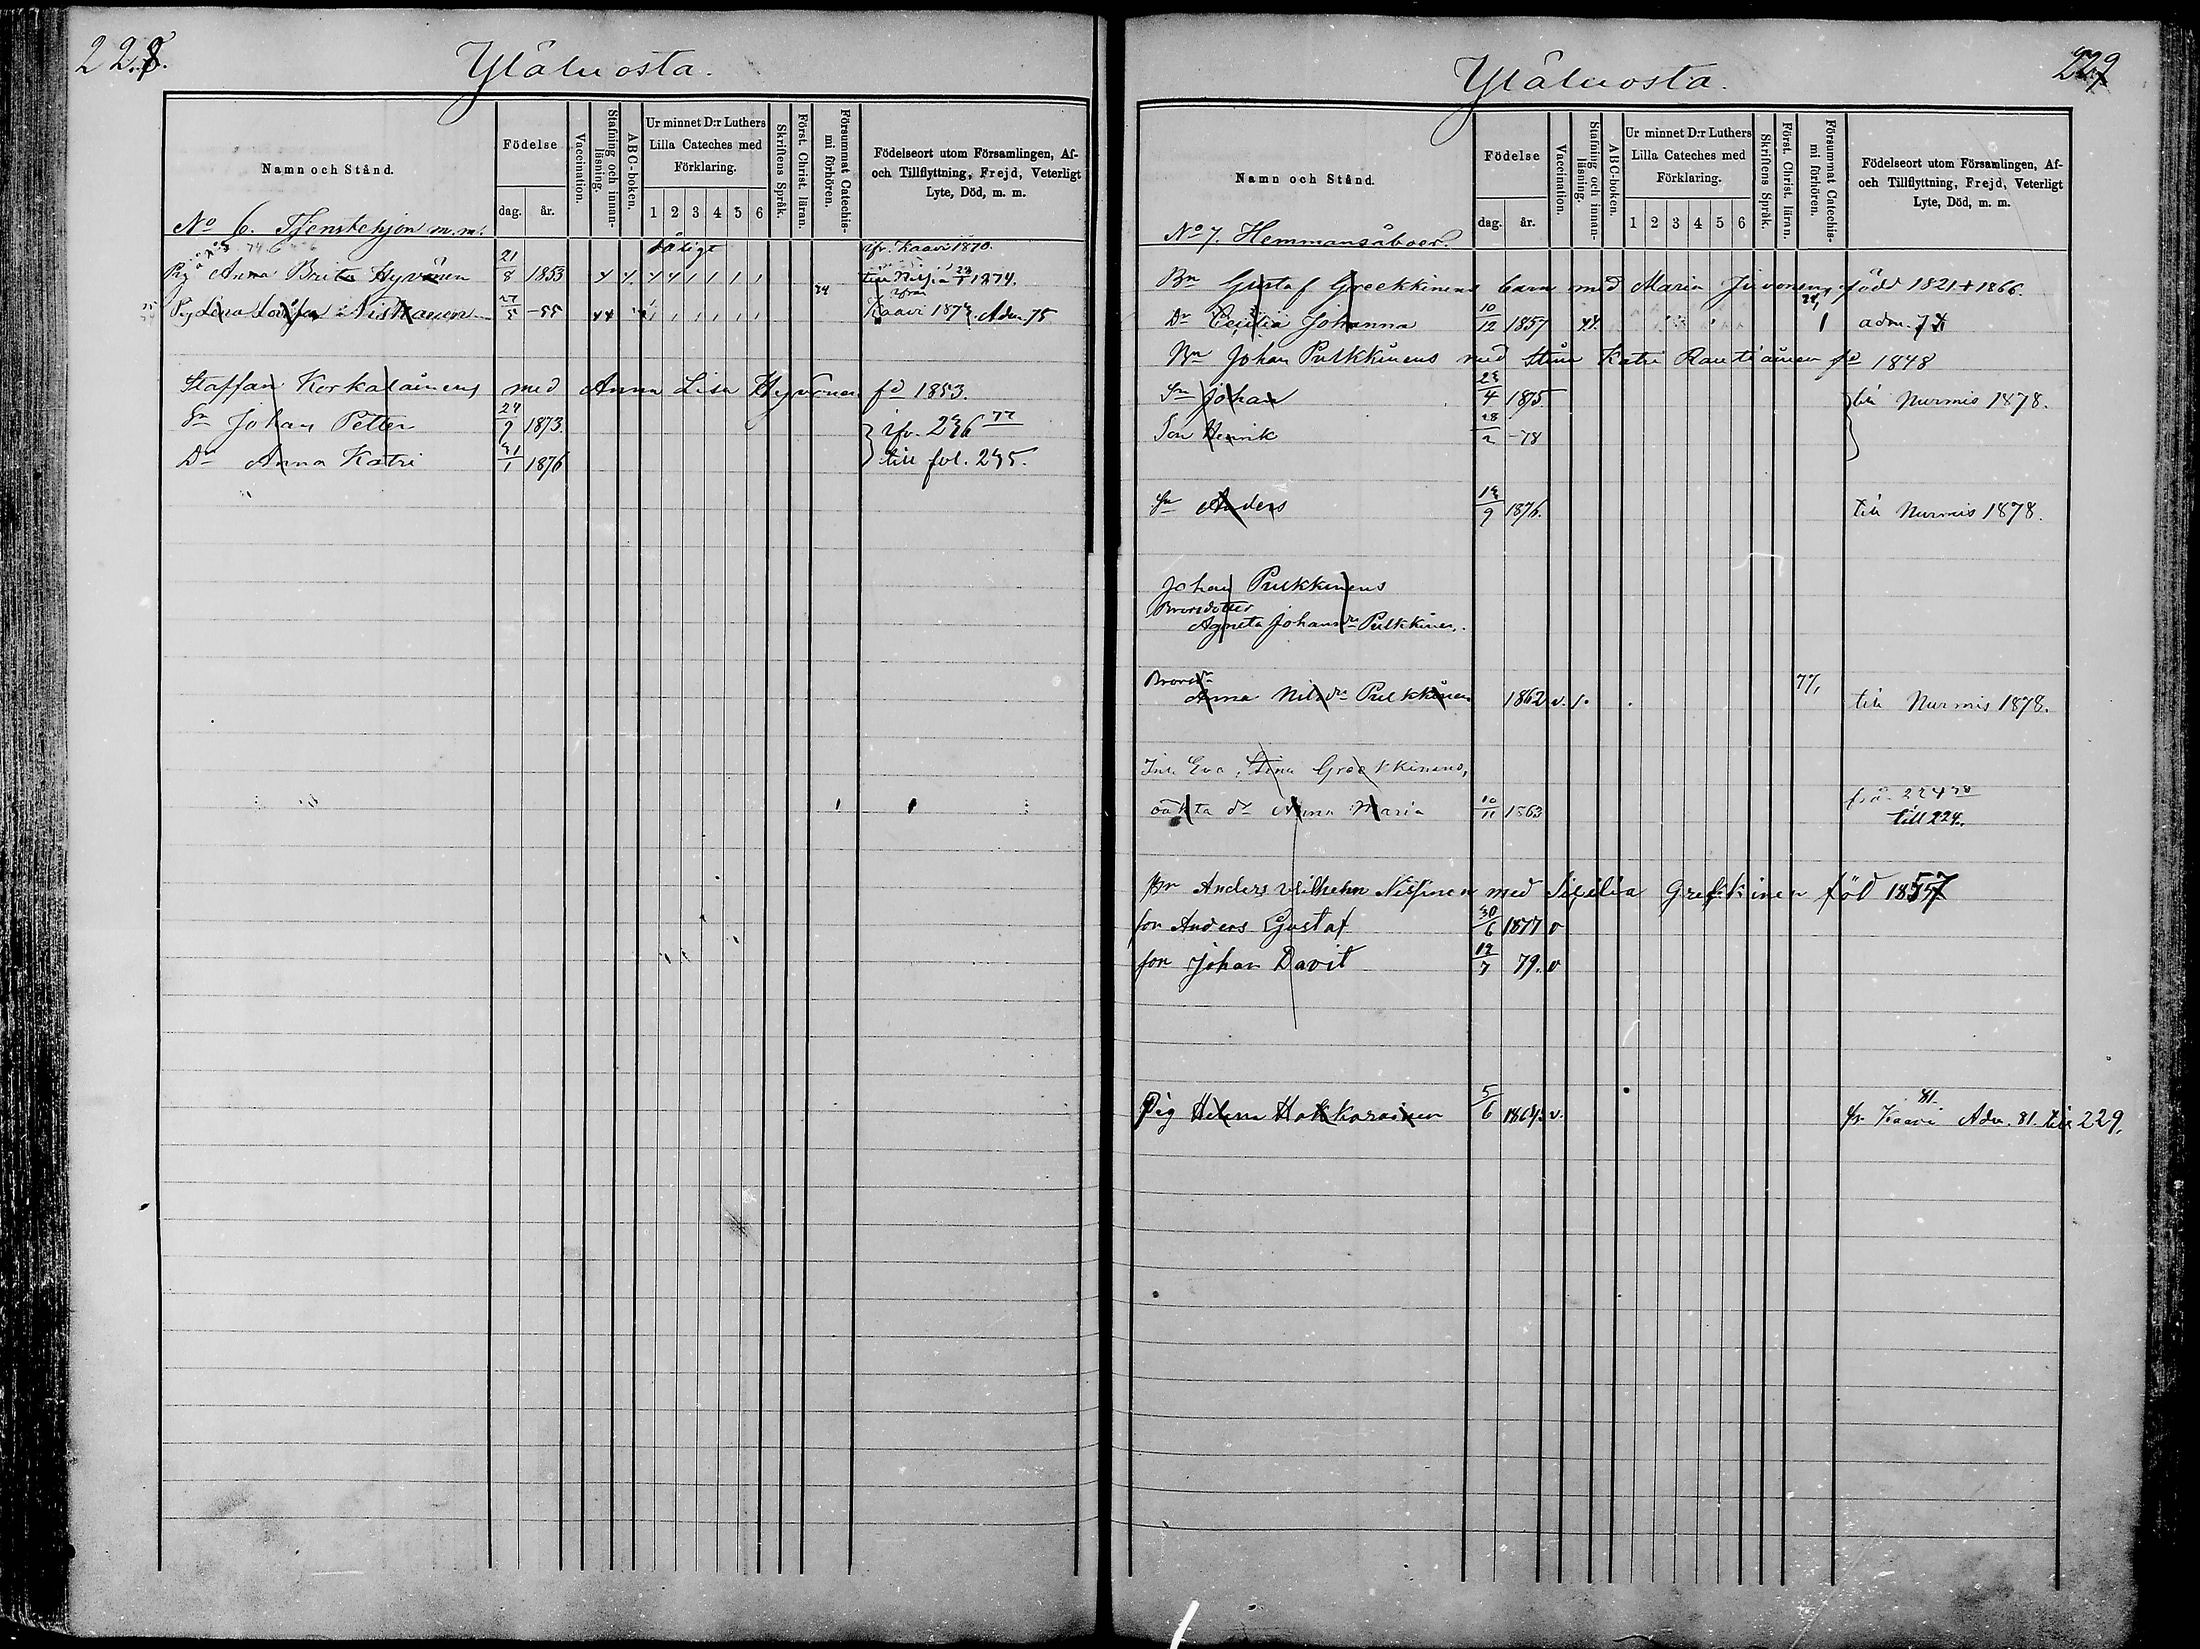 228.
Yläluosta.
Namn och Stånd.
Födelse
dag. år.
Vaccination.
Stafning och innan-läsning.
ABC-boken.
Ur minnet D:r Luthers Lilla Cateches med Förklaring.
1 2 3 4 5 6
Skriftens Språk.
Först. Christ. läran.
Försummat Catechis-mi förhören.
Födelseort utom Församlingen, Af- och Tillflyttning, Frejd, Veterligt Lyte, Död, m. m.
No 6. Tjenstehjon m.m.
dåligt ifr. Kaavi 1870.
Pig Anna Brita Hyvönen 21/8 1853 till Nilsiä 1874.
Pig Lena Lovisa Niskanen 27/5 -55 ifrån Kaavi 1873 Adm. 75
Staffan Korkalainens med Anna Lisa Hyvönen fd 1853.
Sn Johan Petter 24/9 1873. ifr. 236 77
Dr Anna Katri 31/1 1876 till fol. 235.
229
Yläluosta.
Namn och Stånd.
Födelse
dag. år.
Vaccination.
Stafning och innan-läsning.
ABC-boken.
Ur minnet D:r Luthers Lilla Cateches med Förklaring.
1 2 3 4 5 6
Skriftens Språk.
Först. Christ. läran.
Försummat Catechis-mi förhören.
Födelseort utom Församlingen, Af- och Tillflyttning, Frejd, Veterligt Lyte, Död, m. m.
No 7. Hemmansåboer.
Bn Gustaf Greekkinens barn med Maria Juvonen född 1821 + 1866.
Dr Cecilia Johanna 10/12 1857 adm. 74
Bn Johan Pulkkinens med Stina Katri Rautiainen fd 1848
Sn Johan 23/4 1875. till Nurmis 1878.
Son Henrik 28/2 -78
Sn Anders 13/9 1876. till Nurmis 1878.
Johan Pulkkinens
Brorsdotter
Agneta Johansdr Pulkkinen.
Brorsdr
Anna Nilsdr Pulkkinen 1862 v. 77/1 till Nurmis 1878.
Inh. Eva Stina Greekkinens,
oäkta dr Anna Maria 10/11 1863 från 224 78
till 224.
Bn Anders Vilhelm Nissinen med Sicilia Grekkinen föd 1857
son Anders Gustaf 30/6 1877 v
son Johan Davit 19/7 79. v
Pig Helena Hakkarainen 5/6 1864. v. fr Kaavi 81 Adm. 81. till 229.